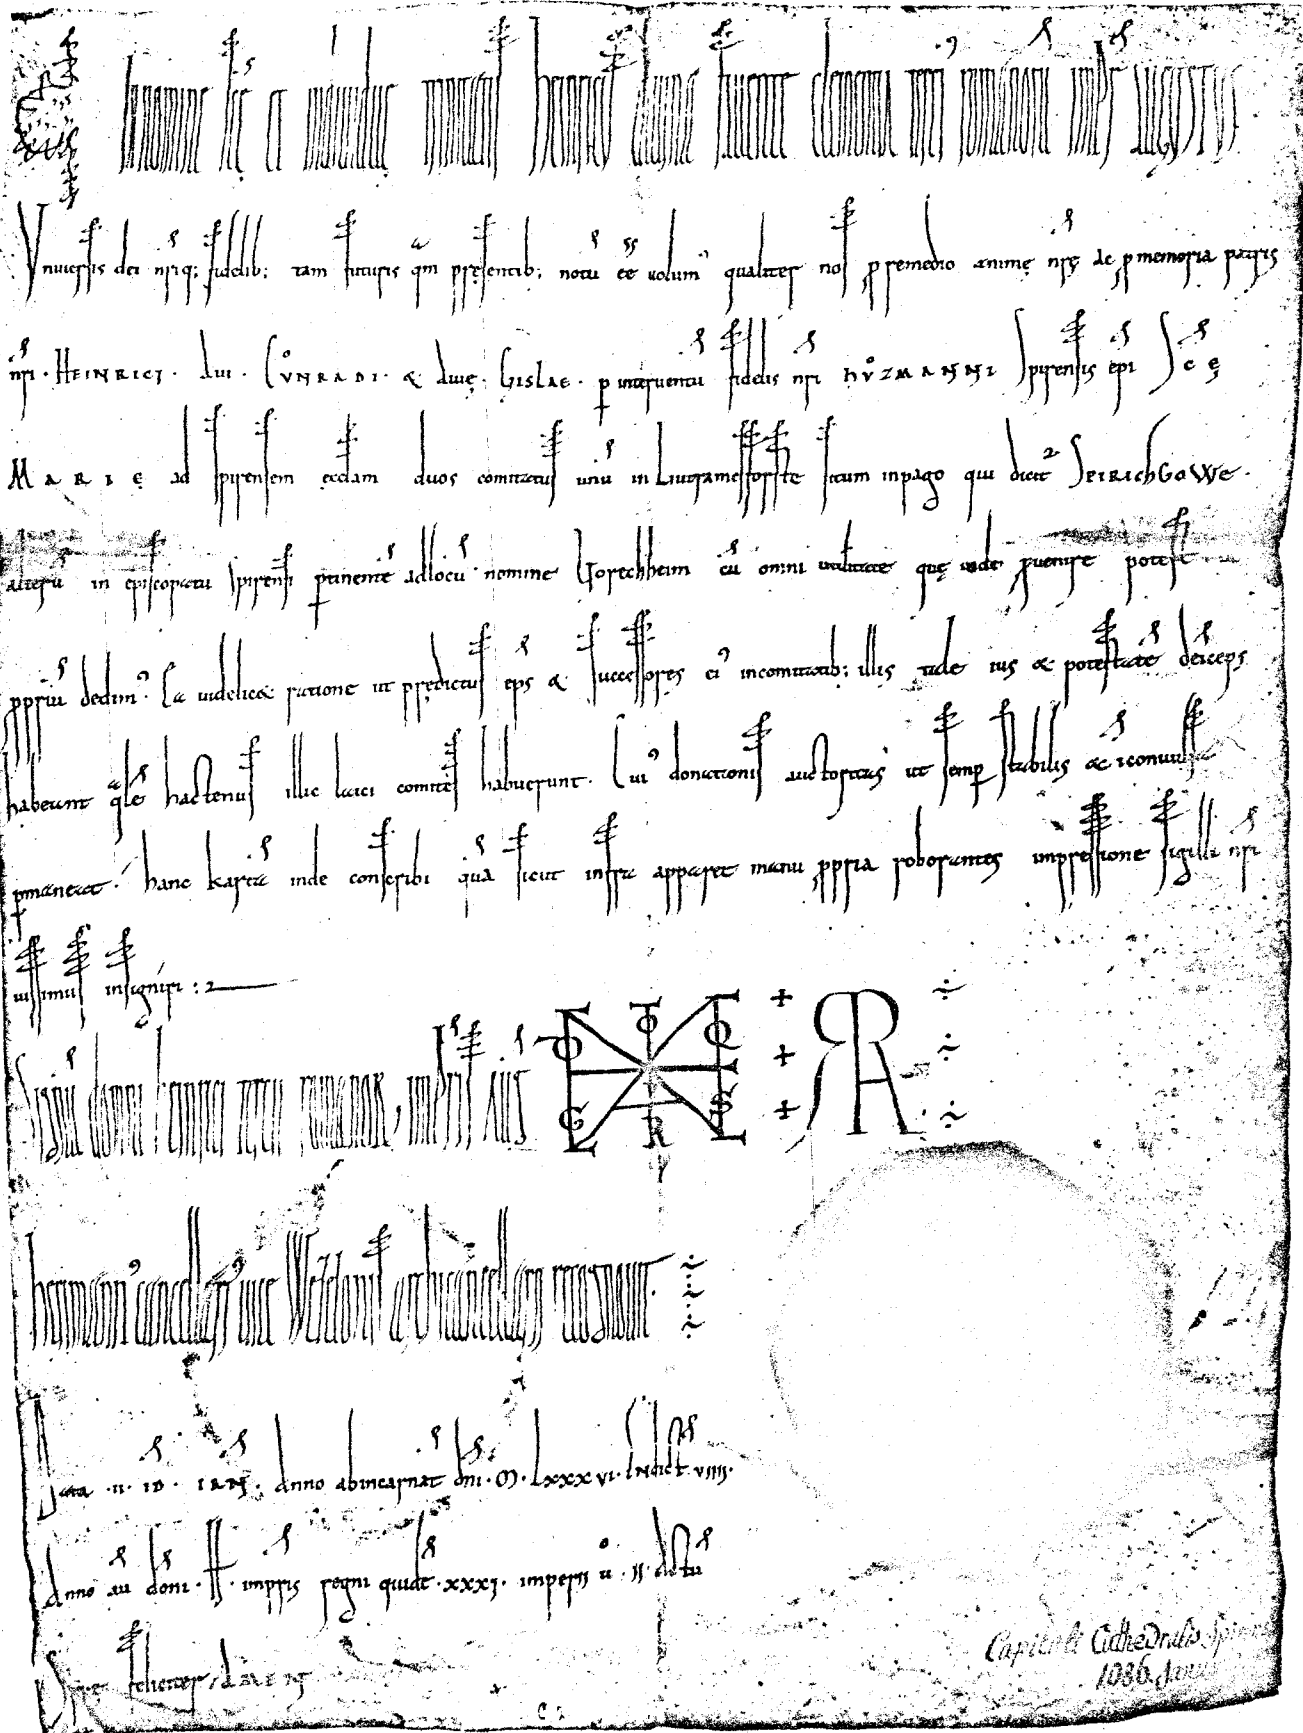 In nomine scę et individuę trinitatis heinricus divina favente clementia terci romanorū impr augustus
Universis dei nrīq; fidelib; tam futuris qm pręsentib; notū eē volum' qualiter nos pro remedio animę nrę ac p memoria patris
nri · HEINRICI · avi · CŮNRADI · & avię · GISLAE · p interventū fidelis nri HŮZMANNI Spirensis epi Scę
MARIĘ ad spirensem ęcclam duos comitatus unū in Liutrameſforſte situm in pago qui dicit SPIRICHGOWE ·
alterū in episcopatu spirensi ptinentē ad locū nomine Forechheim cū omni utilitate quę inde pvenire potest
ppriū dedim' · Ea videlicet ratione ut prędictus eps & successores ei' in comitatib; illis tale ius & potestatē deīceps
habeant qale hactenus illic laici comites habuerunt · Cui' donationis auctoritas ut semp stabilis & īconvulsa
pmaneat · hanc kartā inde conscribi quā sicut infra apparet manu ppria roborantes impressione sigilli nri
iussimus insigniri :
Signū domni heinrici tercii romanor imptris aug
herimann' cancellari' vice Wezelonis archicancellarii recognovit ·
Data · II · ID · IAN · Anno ab incarnat dni · M · LXXXVI · Indict VIIII ·
Anno au domi · H · impris regni quidē · XXXI · imperii ů · II · Actū
feliciter AMEN
Capituli Cathedralis Spirens
1086. Janu